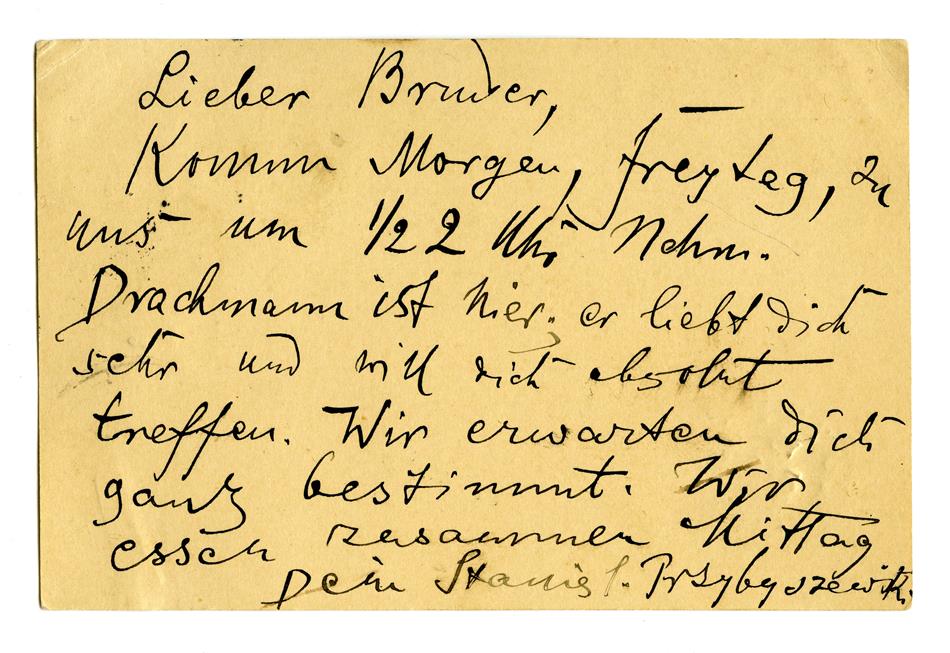 Lieber Bruder,
Komm Morgen, Freytag, zu
uns um 1/2 2 Uhr Nchm.
Drachmann ist hier. er liebt dich
sehr und will dich absolut
treffen. Wir erwarten dich
ganz bestimmt. Wir
essen zusammen Mittag
Dein Stanisl. Przybyszewsk.